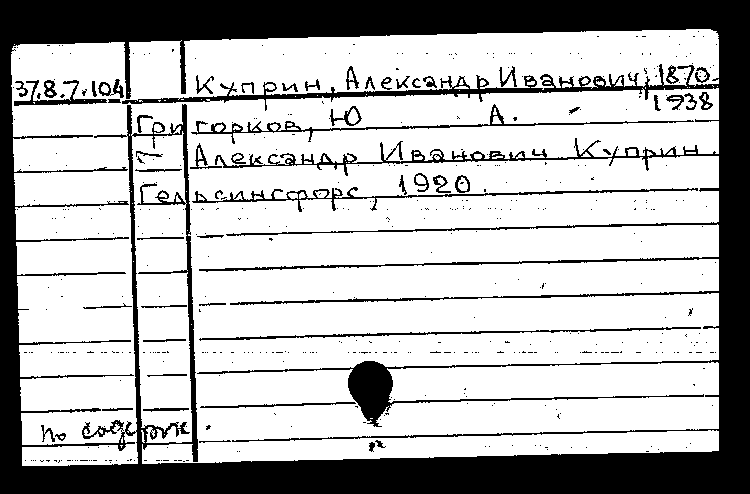 37.8.7.104 Куприн, Александр Иванович, 1870-
1938
Григорков, Ю А.
Александр Иванович Куприн.
Гельсингфорс, 1920.
по содерж.